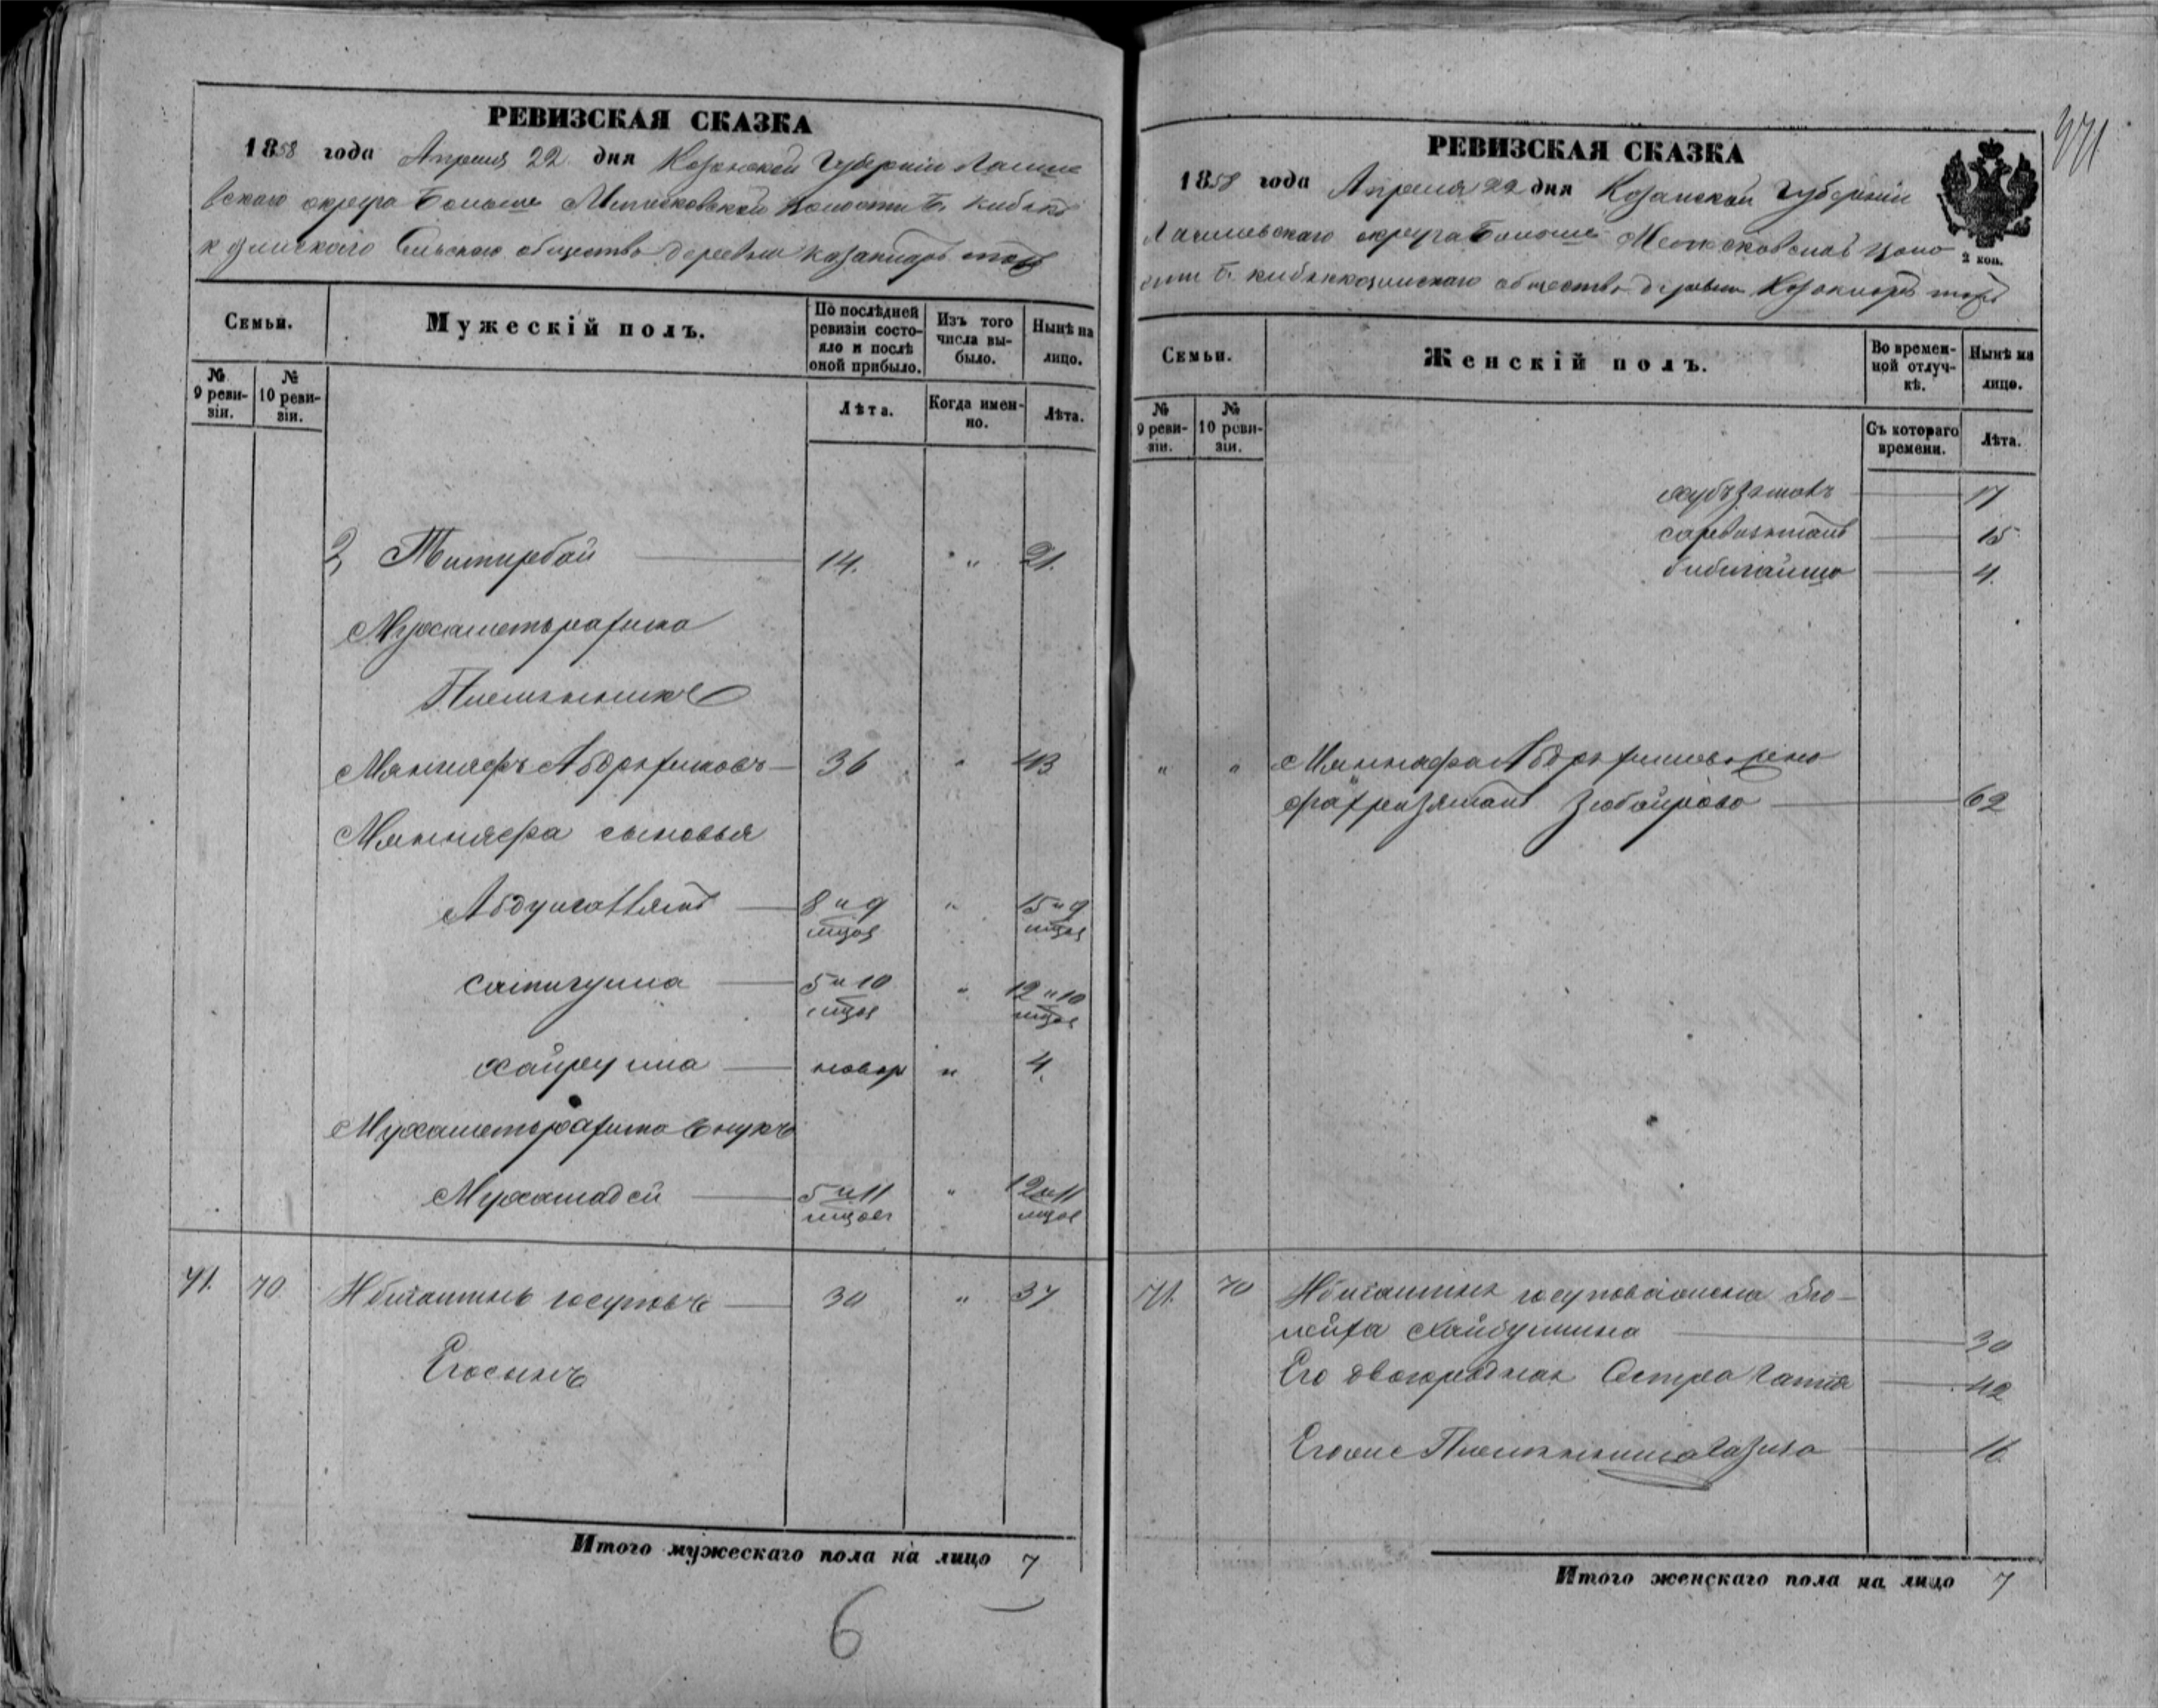 РЕВИЗСКАЯ СКАЗКА
1858 года Апреля 22 дня Казанской Губернии Лаише
вскаго округа Больше Метесковской Волости Б. Кибяк
козинскаго Сельскаго общества деревни Казаклар
Семьи.
Мужескій полъ.
По послѣдней ревизіи состояло и послѣ оной прибыло.
Изъ того числа выбыло.
Нынѣ на лицо.
№ 9 ревизіи.
№ 10 ревизіи.
Лѣта.
Когда именно.
Лѣта.
2, Тимирбай 14. " 21.
Мухаметьрахима
Племянникъ
Минняфъ Абдряхимовъ 36 " 43
Минняфа сыновья
Абдул 8 и 9 мцов " 15 и 9 мцов
5 и 10 мцов " 12 и 10 мцов
Хайрулла новор " 4.
Мухаметьрахима внукъ
Мухамадей 5 и 11 мцов " 12 и 11 мцов
71. 70 Ибигаминъ Юсуповъ 30 " 37
Его сынъ
Итого мужескаго пола на лицо 7
6
371
РЕВИЗСКАЯ СКАЗКА
1858 года Апреля 22 дня Казанской Губернии
Лаишевскаго округа Больше Метесковской Воло
сти Б. Кибяккозинскаго общества деревни Казаклар
2 коп.
Семьи.
Женскій полъ.
Во временной отлучкѣ.
Нынѣ на лицо.
№ 9 ревизіи.
№ 10 ревизіи.
Съ котораго времени.
Лѣта.
17
15
4.
" " Минняфа Абдряхимова жена
Зюбаирова 62
71. 70 Юсупова жена
Хайбуллина 30
Его двоюродная Сестра 42
Племянница 16
Итого женскаго пола на лицо 7